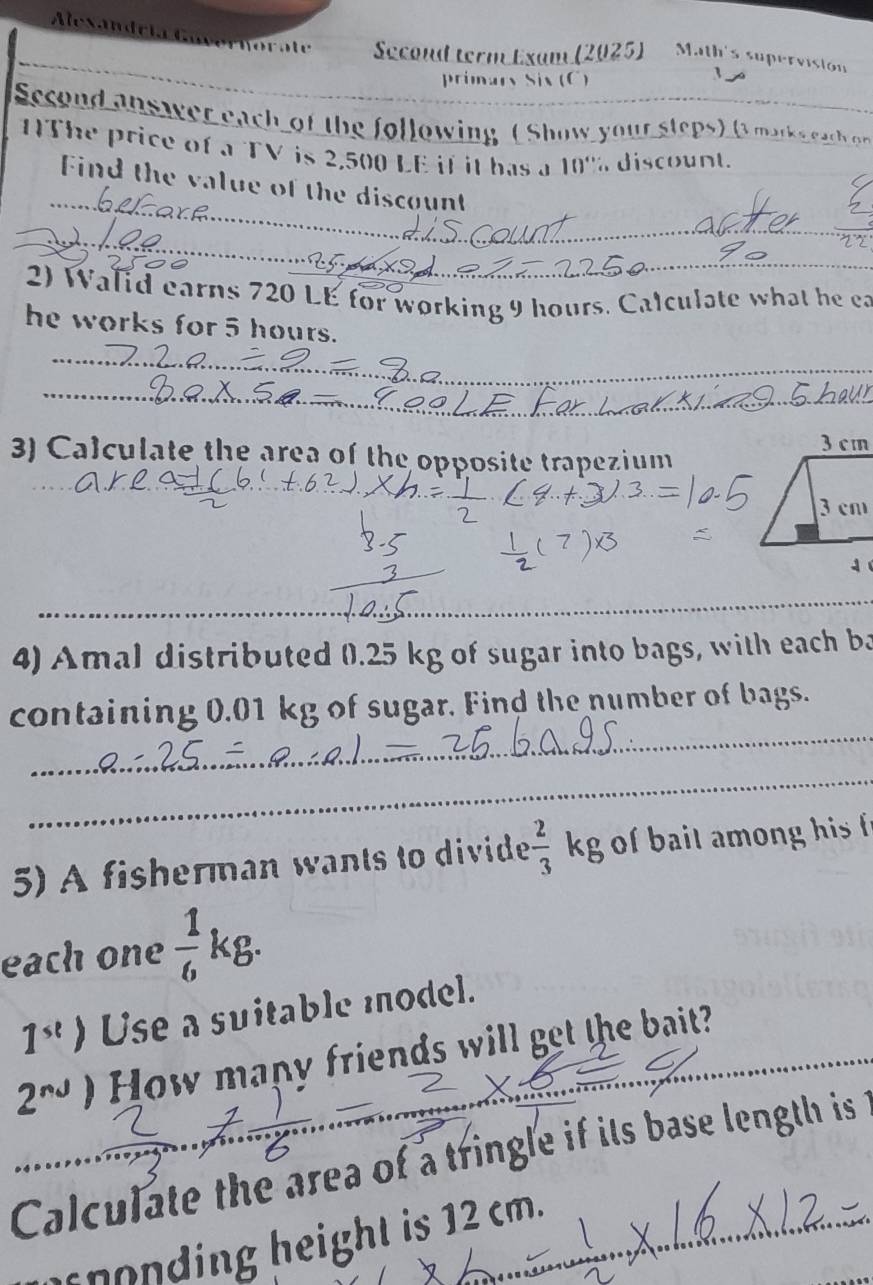 Alexandria Governorate Second term Exam (2025) Math's supervision
primary Six (C)
Second answer each of the following (Show your steps) (3 marks each on
1)The price of a TV is 2,500 LE if it has a 10% discount.
Find the value of the discount
discount
100 90
2500 = 2250
2) Walid earns 720 LE for working 9 hours. Calculate what he ea
he works for 5 hours.
720 ÷ 9 = 80
80 × 5 = 400 LE For working 5 hour
3) Calculate the area of the opposite trapezium
3 cm
area = 1/2 (b1 + b2) × h = 1/2 (4 + 3) 3 = 10.5
3 cm
3.5 1/2 (7) × 3 =
3
4
10.5
4) Amal distributed 0.25 kg of sugar into bags, with each ba
containing 0.01 kg of sugar. Find the number of bags.
0.25 ÷ 0.01 = 25 bags.
5) A fisherman wants to divide 2/3 kg of bail among his f
each one 1/6 kg.
1st ) Use a suitable model.
2nd ) How many friends will get the bait?
2/3 ÷ 1/6 = 2/3 × 6/1 =
Calculate the area of a tringle if its base length is 1
sponding height is 12 cm.
1/2 × 16 × 12 =